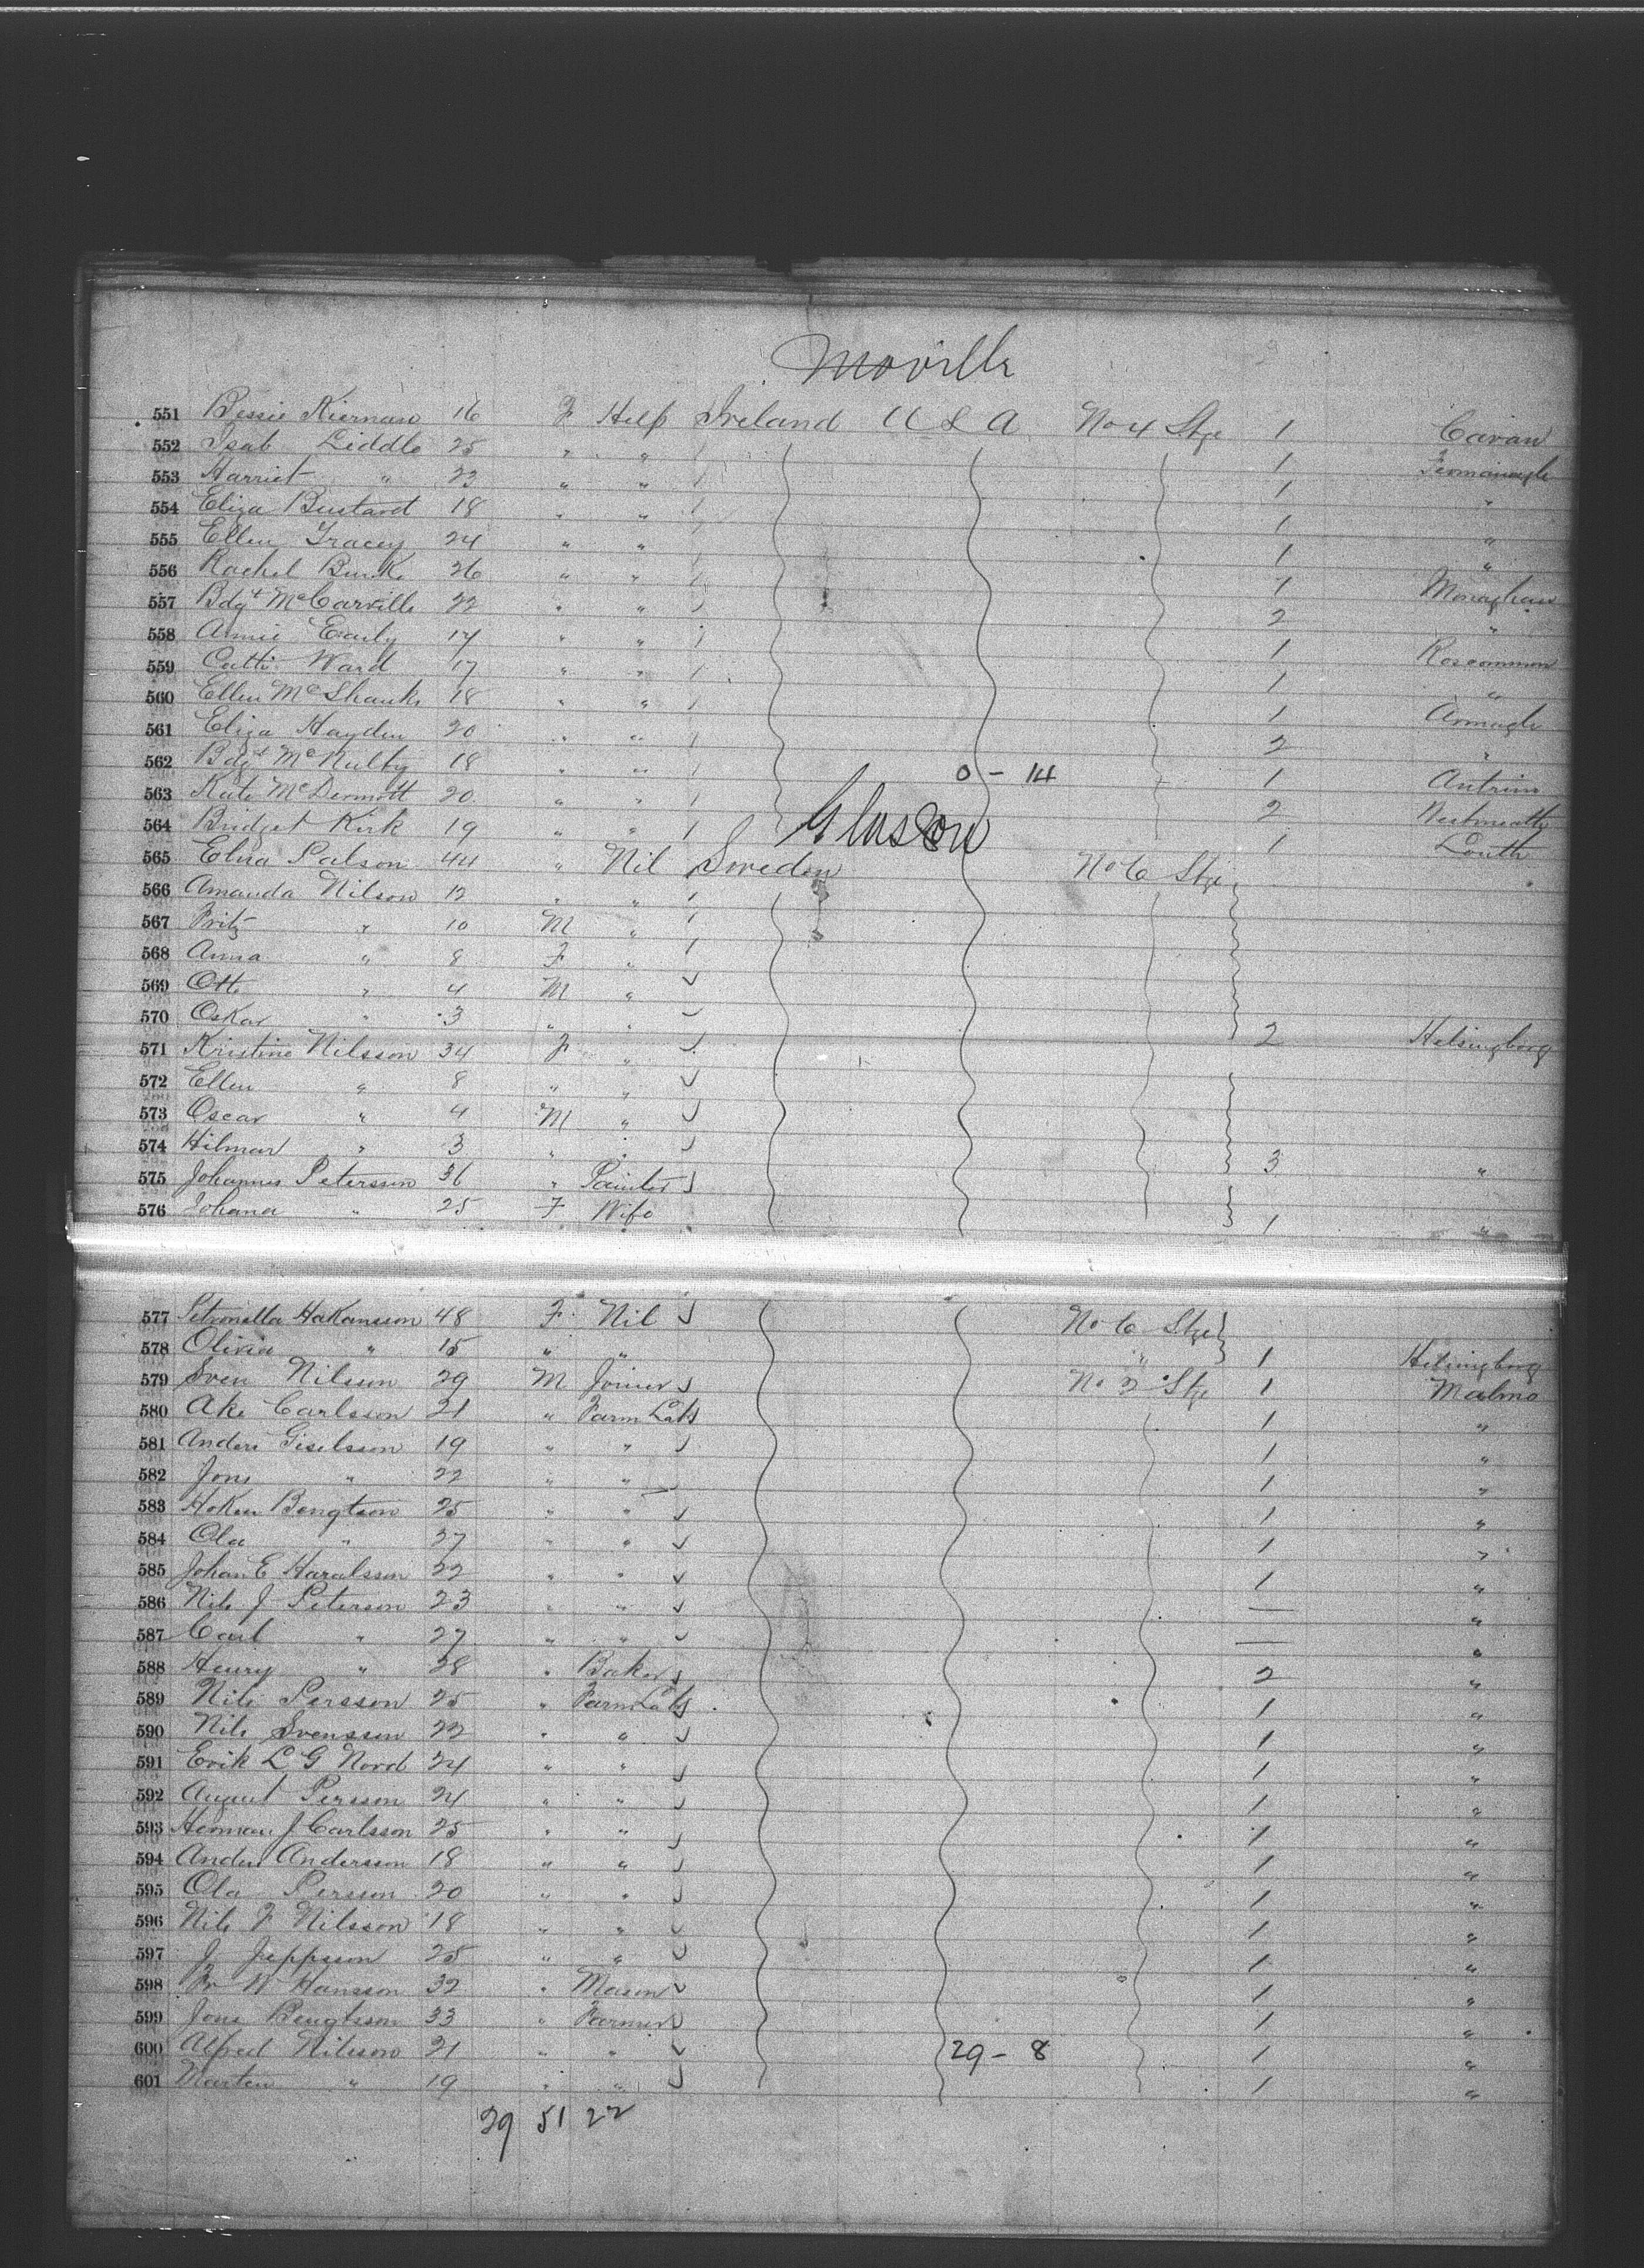 Moville
551 Bessie Kiernan 16 F Help Ireland U S A No 4 Stge 1 Cavan
552 Isab Liddle 25 " " 1 Fermanagh
553 Harriet " 23 " " 1 "
554 Eliza Bustard 18 " " 1 "
555 Ellen Tracey 24 " " 1 "
556 Rachel Burke 26 " " 1 Monaghan
557 Bdgt McCarville 22 " " 2 "
558 Annie Early 17 " " 1 Roscommon
559 Catti Ward 17 " " 1 "
560 Ellen McShank 18 " " 1 Armagh
561 Eliza Hayden 20 " " 2 "
562 Bdgt McNulty 18 " " 0 - 14 1 Antrim
563 Kate McDermott 20 " " 2 Westmeath
564 Bridget Kirk 19 " " Glasgow 1 Louth
565 Elna Palson 44 " Nil Sweden No 6 Stge
566 Amanda Nilson 12 " "
567 Fritz " 10 M "
568 Anna " 8 F "
569 Otto " 4 M "
570 Oskar " 3 " "
571 Kristine Nilsson 34 F " 2 Helsingborg
572 Ellen " 8 " "
573 Oscar " 4 M "
574 Hilmar " 3 " "
575 Johannes Petersson 36 " Painter 3 "
576 Johana " 25 F Wife 1 "
577 Petronella Hakansson 48 F Nil No 6 Stge
578 Olivia " 15 " " " 1 Helsingborg
579 Sven Nilsson 29 M Joiner No 2 Stge 1 Malmo
580 Ake Carlsson 21 " Farm Lab 1 "
581 Anders Giselsson 19 " " 1 "
582 Jons " 22 " " 1 "
583 Hoken Bengtson 25 " " 1 "
584 Ola " 27 " " 1 "
585 Johan E Haralsson 22 " " 1 "
586 Nils J Peterson 23 " " — "
587 Carl " 27 " " — "
588 Henry " 28 " Baker 2 "
589 Nils Persson 25 " Farm Lab 1 "
590 Nils Svensson 22 " " 1 "
591 Erik L G Nord 24 " " 1 "
592 August Persson 24 " " 1 "
593 Herman J Carlsson 25 " " 1 "
594 Anders Andersson 18 " " 1 "
595 Ola Persson 20 " " 1 "
596 Nils F Nilsson 18 " " 1 "
597 J Jeppsson 25 " " 1 "
598 Fr W Hansson 32 " Mason 1 "
599 Jons Bengtsson 33 " Farmer 1 "
600 Alfred Nilsson 21 " " 29 - 8 1 "
601 Marten " 19 " " 1 "
29 51 22